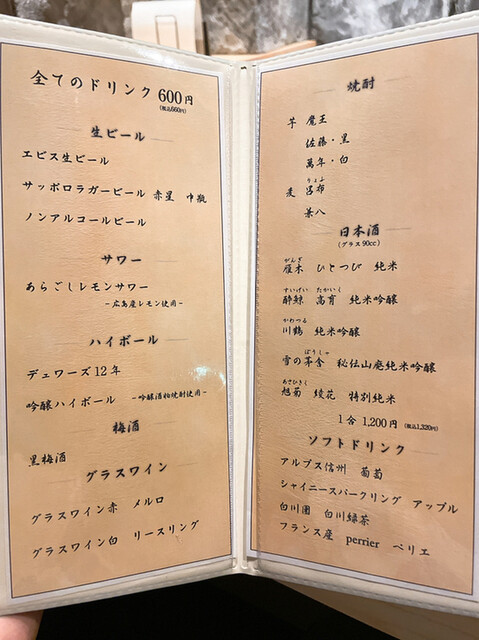 全てのドリンク 600円
(税込660円)
生ビール
エビス生ビール
サッポロラガービール 赤星 中瓶
ノンアルコールビール
サワー
あらごしレモンサワー
-広島産レモン使用-
ハイボール
デュワーズ12年
吟醸ハイボール -吟醸酒粕焼酎使用-
梅酒
黒梅酒
グラスワイン
グラスワイン赤 メルロ
グラスワイン白 リースリング
焼酎
芋 魔王
佐藤・黒
萬年・白
りょふ
麦 呂布
兼八
日本酒
(グラス90cc)
がんぎ
雁木 ひとつび 純米
すいげい たかいく
酔鯨 高育 純米吟醸
かわつる
川鶴 純米吟醸
ぼうしゃ
雪の茅舎 秘伝山廃純米吟醸
あさひきく
旭菊 綾花 特別純米
1合 1,200円 (税込1,320円)
ソフトドリンク
アルプス信州 葡萄
シャイニースパークリング アップル
白川園 白川緑茶
フランス産 perrier ペリエ